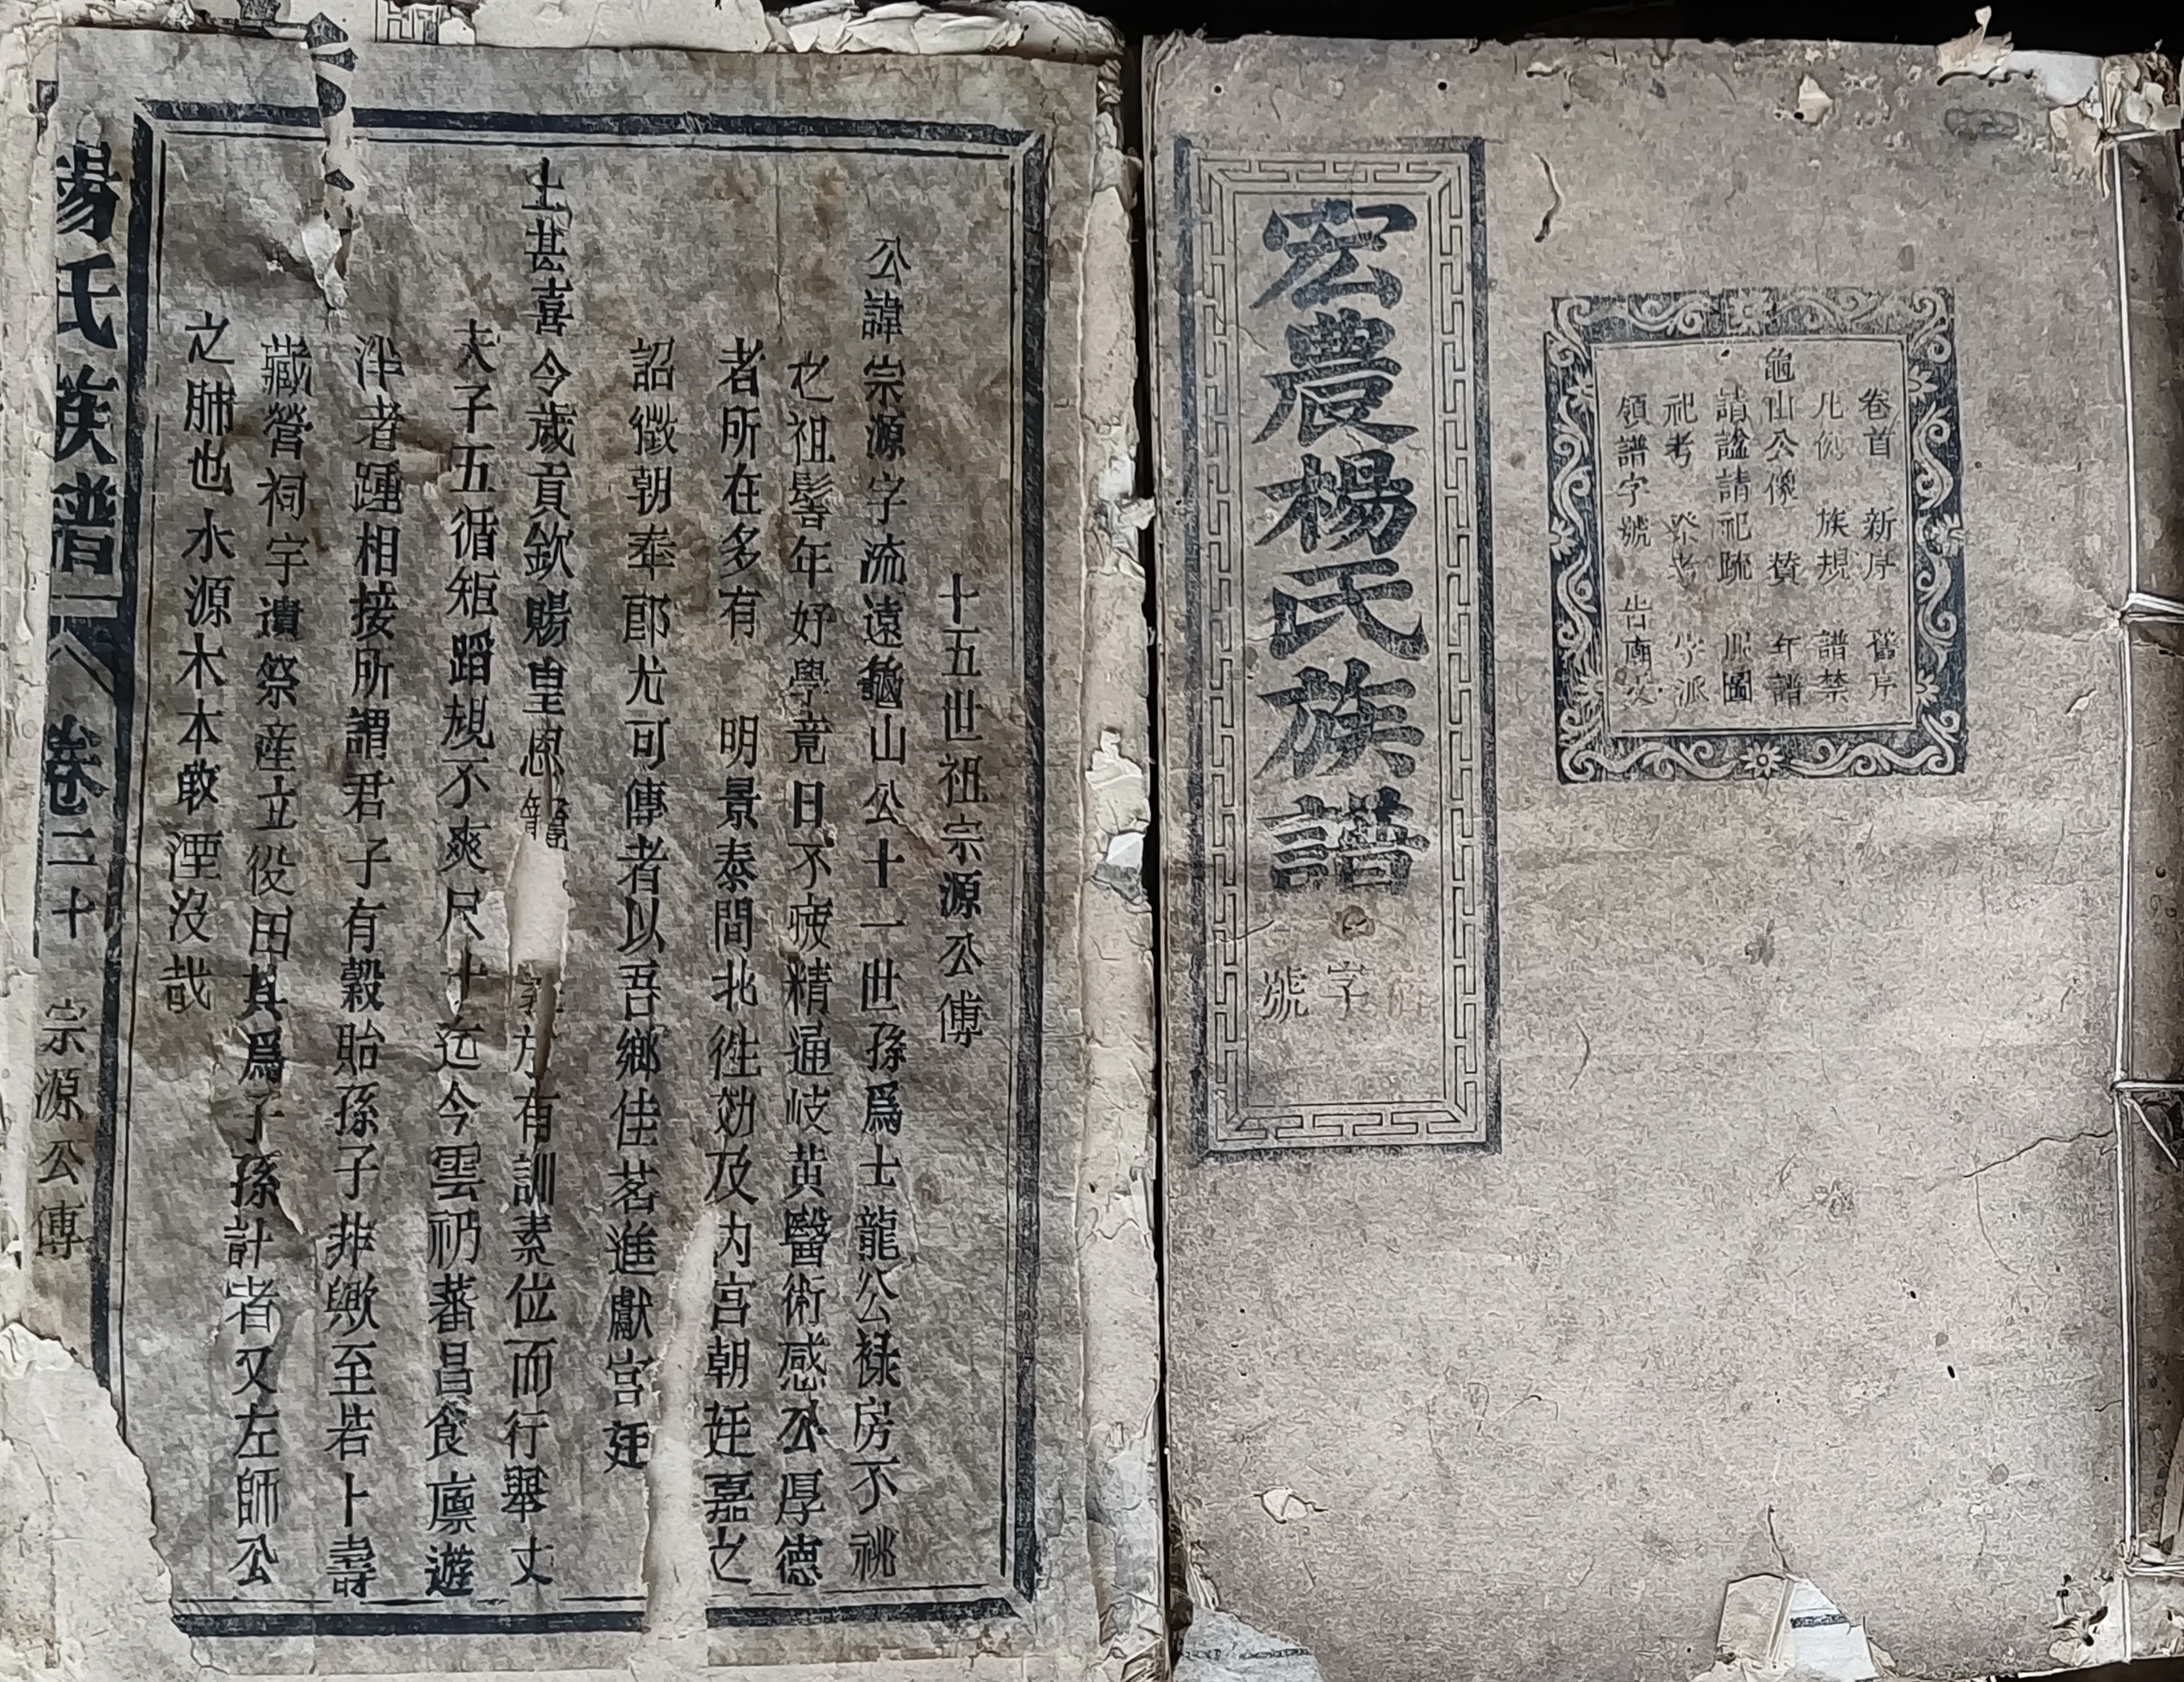 宏農楊氏族譜
字
號
卷首 新序 舊序
凡例 族規 譜禁
龜山公像 贊 年譜
請謚請祀疏 圖
祀考 祭 字派
領譜字號 告廟文
十五世祖宗源公傳
公諱宗源字流遠龜山公十一世孫爲士龍公祿房不祧
之祖髫年好學竟日不疲精通岐黄醫術感公厚德
者所在多有 明景泰間北徃効及内宫朝廷嘉之
詔徵朝奉郎尤可傳者以吾鄉佳茗進獻宫廷
上甚喜今歲貢欽賜皇恩 方有訓素位而行舉丈
夫子五循矩蹈規不爽尺寸迄今雲礽蕃昌食廪遊
泮者踵相接所謂君子有穀貽孫子非歟至若卜壽
藏營祠宇遺祭産立役田其爲子孫計者又左師公
之肺也水源木本敢湮没哉
楊氏族譜
卷二十
宗源公傳